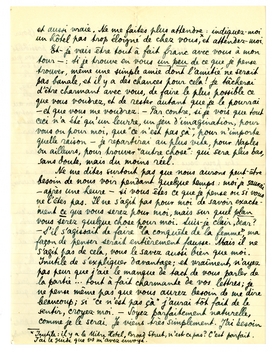 et aussi vraie. Ne me faites plus attendre: indiquez-moi
un hôtel pas trop éloigné de chez vous, et attendez-moi.
Et je vais être tout à fait franc avec vous à mon
tour: si je trouve en vous un peu de ce que je pense
trouver, même une simple amie dont l'amitié ne serait
pas banale, et il y a des chances pour cela! je tâcherai
d'être charmant avec vous, de faire le plus possible ce
que vous voudrez, et de rester autant que je le pourrai
et que vous me voudrez. Par contre, si je vois que tout
ceci n'a été qu'un leurre, un jeu d'imagination, pour
vous ou pour moi, que "ce n'est pas çà", pour n'importe
quelle raison - je repartirai au plus vite, pour Naples
ou ailleurs, pour trouver "autre chose" qui sera plus bas
sans doute, mais du moins réel.
Ne me dites surtout pas que nous aurons peut-être
besoin de nous voir pendant quelque temps: moi je saurai
- après une heure - si vous êtes ce que je pense ou si vous
ne l'êtes pas. Il ne s'agit pas pour moi de savoir exacte-
ment ce que vous serez pour moi, mais sur quel plan
vous serez quelque chose pour moi. Suis-je clair,
S'il s'agissait de faire "la conquête de la femme", ma
façon de penser serait entièrement fausse. Mais il ne
s'agit pas de cela, vous le savez aussi bien que moi.
Inutile de s'expliquer davantage; si seulement n'ayez
pas peur que j'aie le manque de tact de vous parler de
la parité - tout à fait charmante de vos lettres; je
ne pense même pas que vous aurez besoin de me dire
beaucoup; si "ce n'est pas çà" j'aurai tôt fait de le
sentir, croyez-moi. - Soyez parfaitement naturelle,
comme je le serai. Je viens très simplement. J'ai besoin